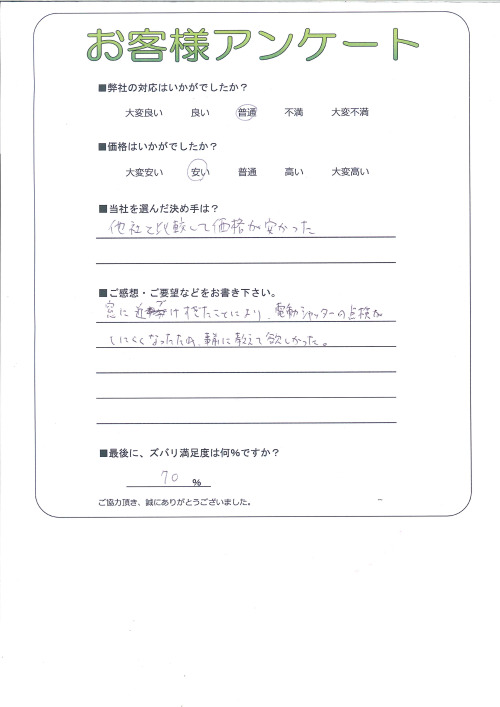 お客様アンケート
■弊社の対応はいかがでしたか？
大変良い 良い 普通 不満 大変不満
■価格はいかがでしたか？
大変安い 安い 普通 高い 大変高い
■当社を選んだ決め手は？
他社と比較して価格が安かった
■ご感想・ご要望などをお書き下さい。
窓に近づけすぎたことにより、電動シャッターの点検が
しにくくなったため、事前に教えて欲しかった。
■最後に、ズバリ満足度は何%ですか？
70 %
ご協力頂き、誠にありがとうございました。